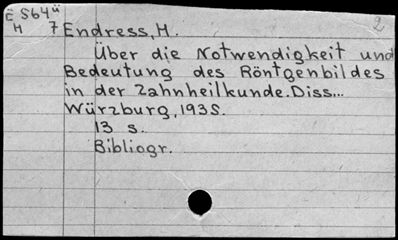 E 564ü 2
H 7 Endress, H.
Über die Notwendigkeit und
Bedeutung des Röntgenbildes
in der Zahnheilkunde. Diss...
Würzburg, 1935.
13 s.
Bibliogr.